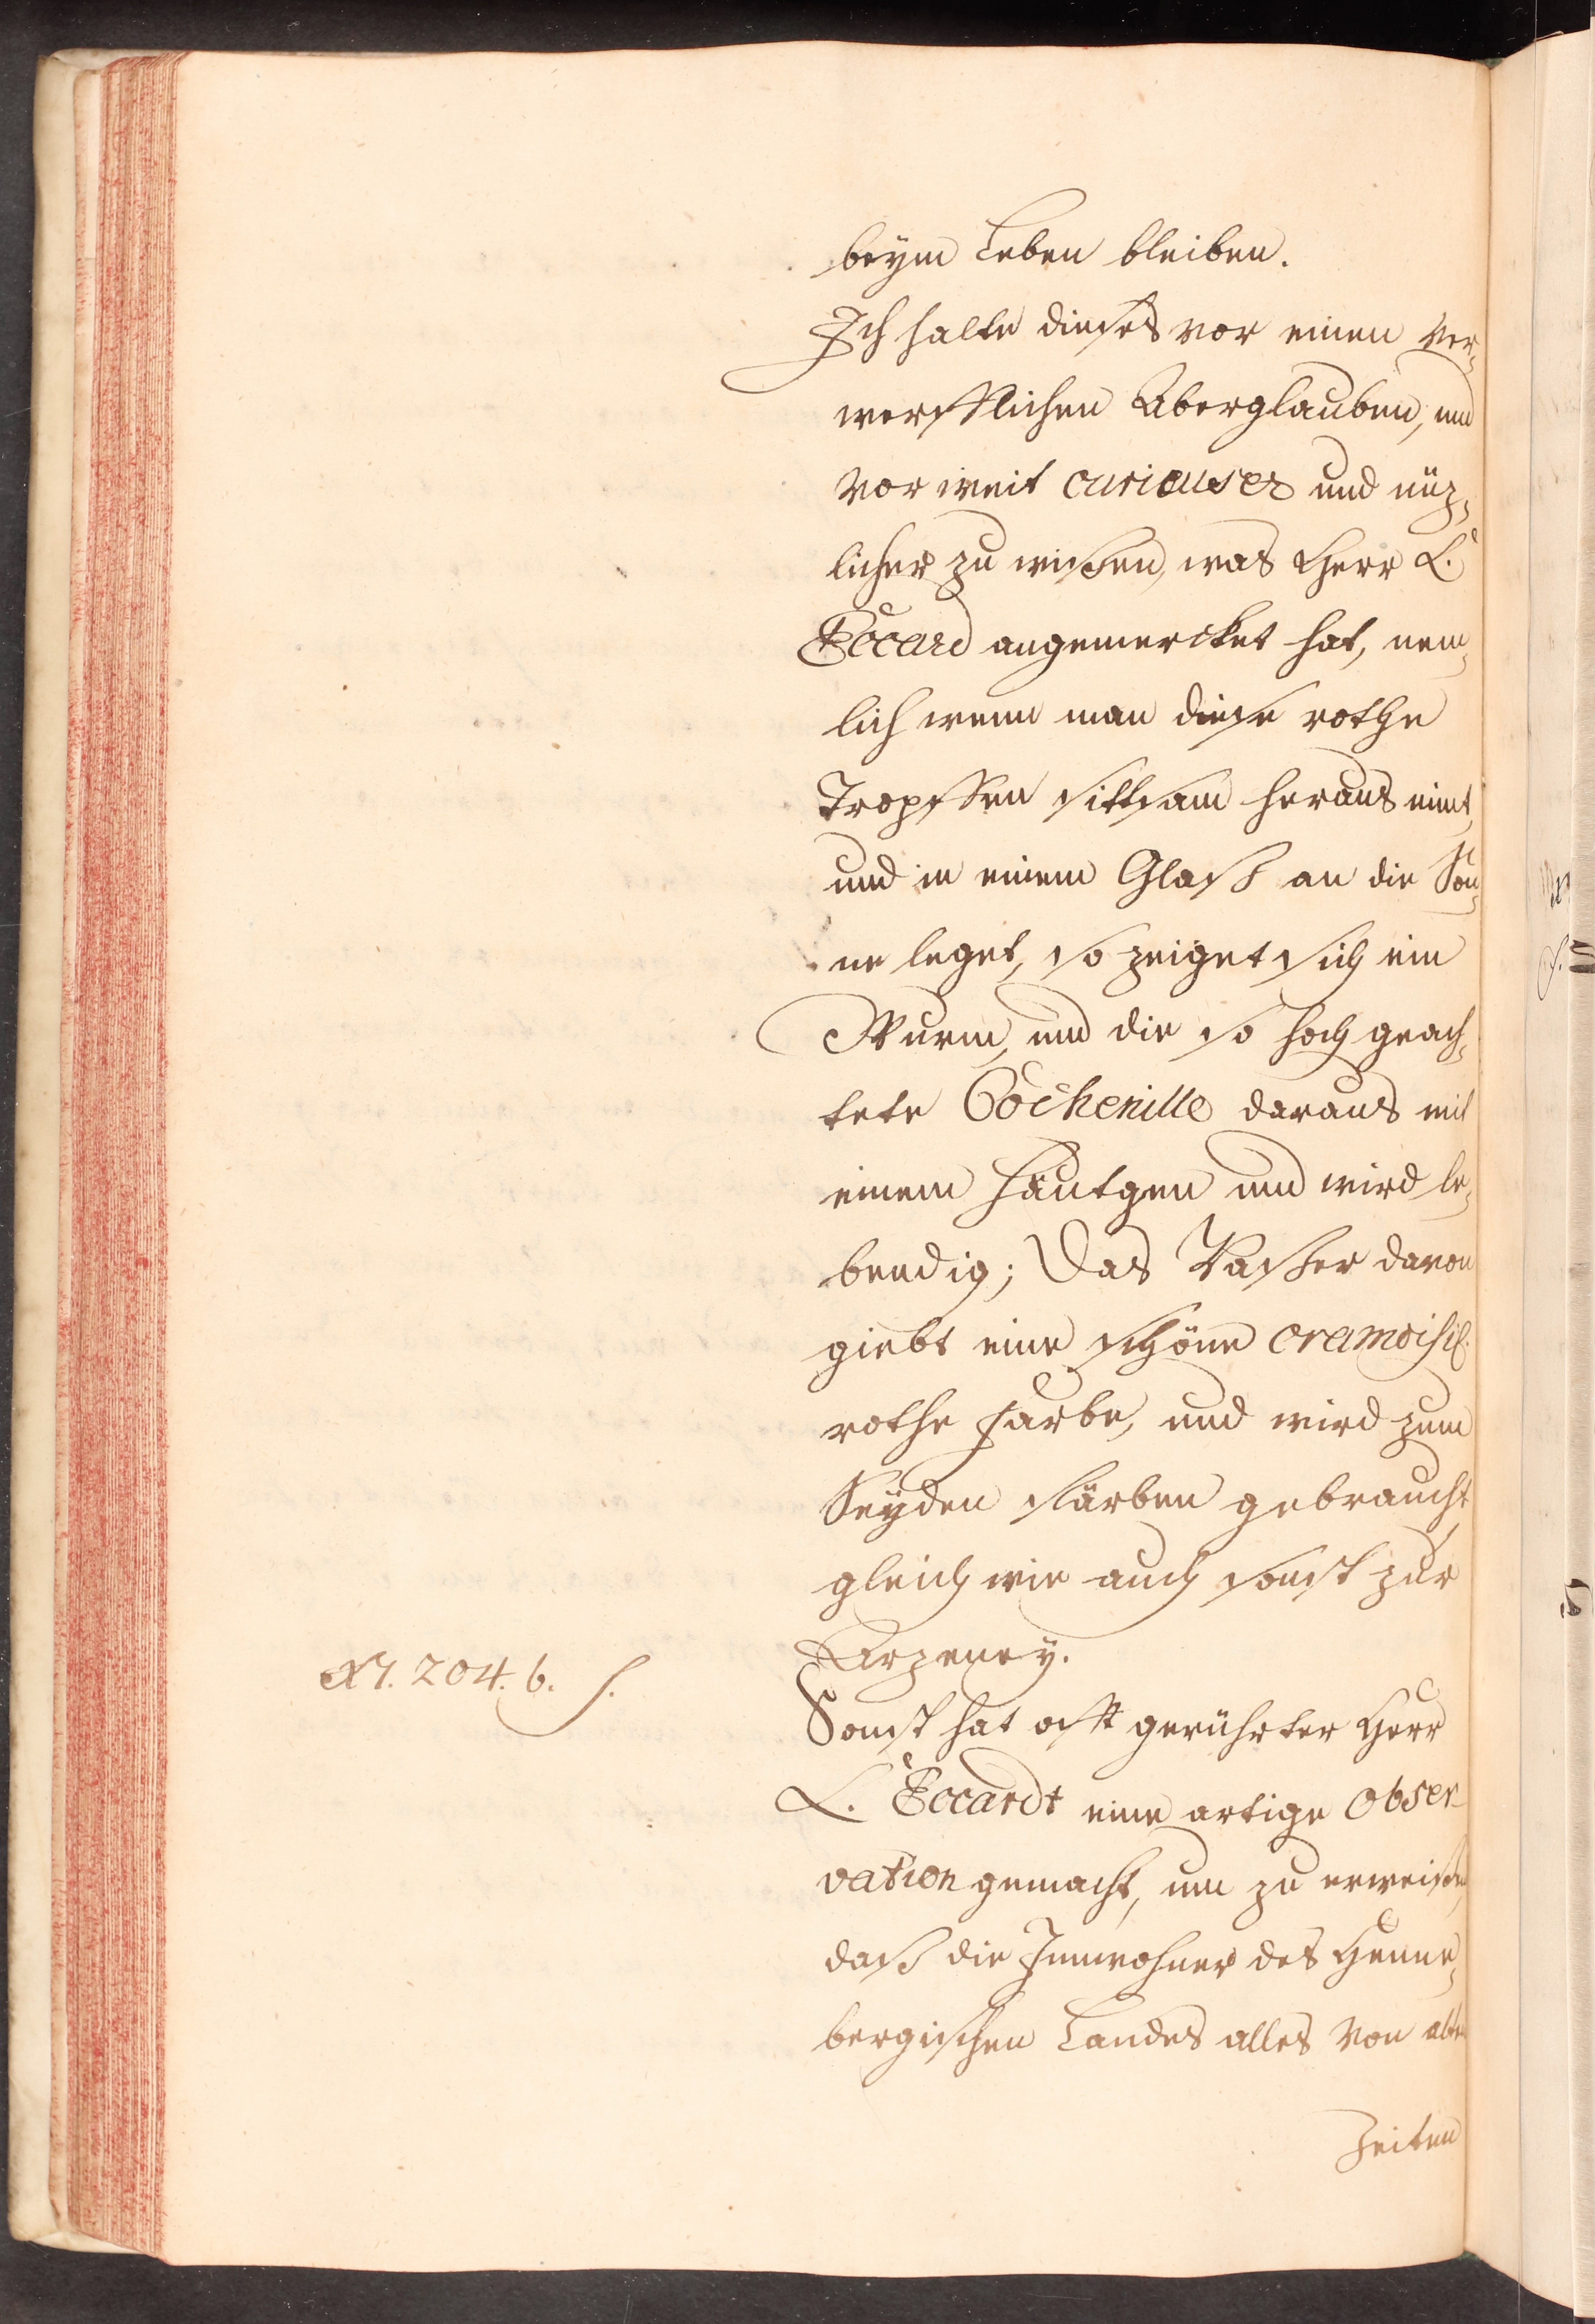 beym Leben bleiben.
Ich halte dieses vor einen ver-
werfflichen Aberglauben, und
vor weit curieuser und nüz-
licher zu wißen, was Herr L.
Eccard angemercket hat, nem-
lich wenn man diese rothe
Tropffen sittsam heraus nimt,
und in einem Glaß an die Son-
ne leget, so zeiget sich ein
Wurm, und die so hoch geach-
tete Cochenille daraus mit
einem Häutgen und wird le-
bendig; Das Waßer davon
giebt eine schöne cramoisi
rothe Farbe, und wird zum
Seyden färben gebraucht,
gleich wie auch sonst zur
Arzeney.
204. b. f.
Sonst hat offt gerührter Herr
L. Eccardt eine artige Obser-
vation gemacht, um zu erweisen,
daß die Innwohner des Henne-
bergischen Landes alles von alten
Zeiten